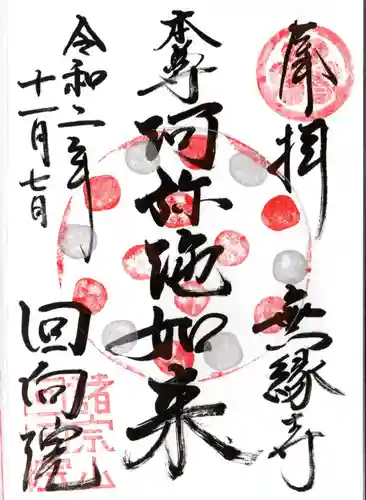 奉拝
無縁寺
本尊阿弥陀如来
令和二年
十一月七日
回向院